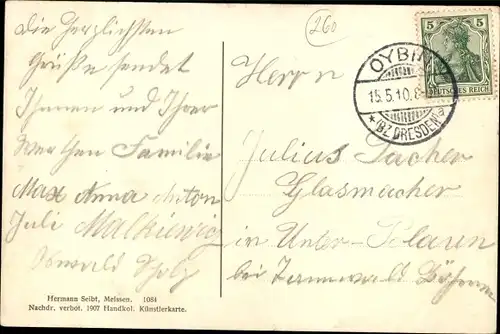 Die Herzlichsten
Grüße sendet
Ihnen und Ihrer
Werthen Familie
Max Anna Anton
Juli Malkiewicz
Oswald
260
Herrn
Julius
Glasmacher
in Unter-Polaun
bei Tannwald Böhmen
OYBIN
15.5.10.8-
*(BZ. DRESDEN)a
5 5
DEUTSCHES REICH
Hermann Seibt, Meissen. 1084
Nachdr. verbot. 1907 Handkol. Künstlerkarte.